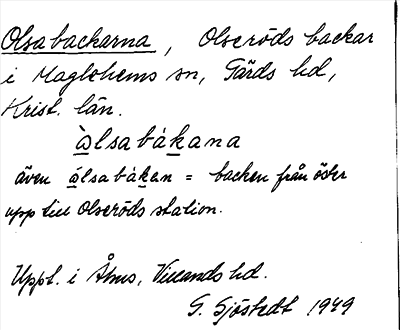 Olsabackarna, Olseröds backar
i Maglehems sn, Gärds hd,
Krist. län.
àlsabákana
även álsabákan = backen från öster
upp till Olseröds station.
Uppt. i Åhus, Villands hd.
G. Sjöstedt 1949